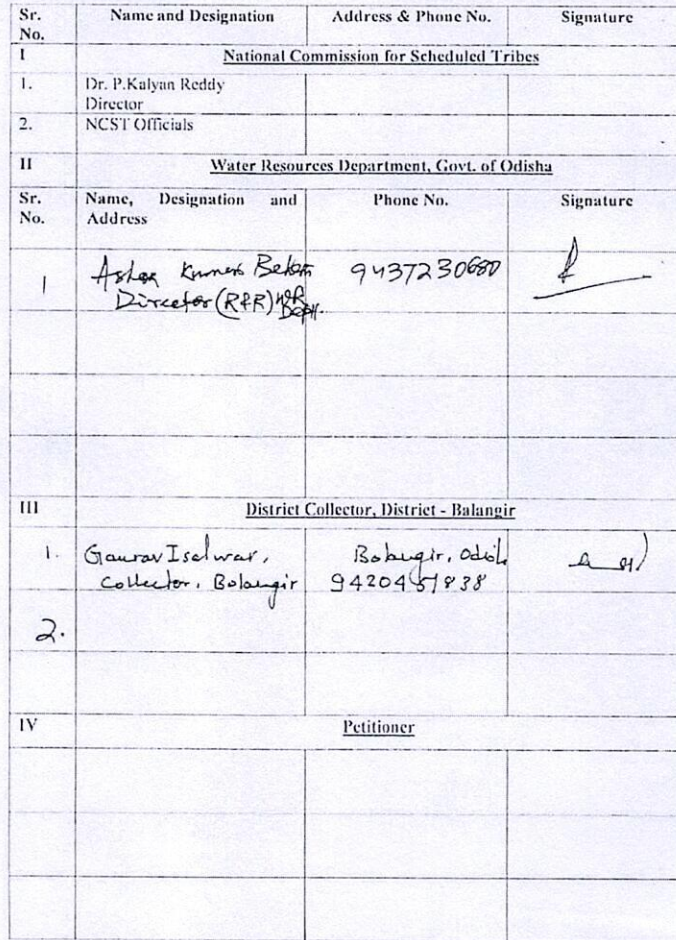 Sr. No. Name and Designation Address & Phone No. Signature
I National Commission for Scheduled Tribes
1. Dr. P.Kalyan Reddy
Director
2. NCST Officials
II Water Resources Department, Govt. of Odisha
Sr. No. Name, Designation and Address Phone No. Signature
1 9437230680
Director (R&R) WR
Deptt.
III District Collector, District - Balangir
1. Gaurav Isalwar, Bolangir,
Collector, Bolangir
2.
IV Petitioner